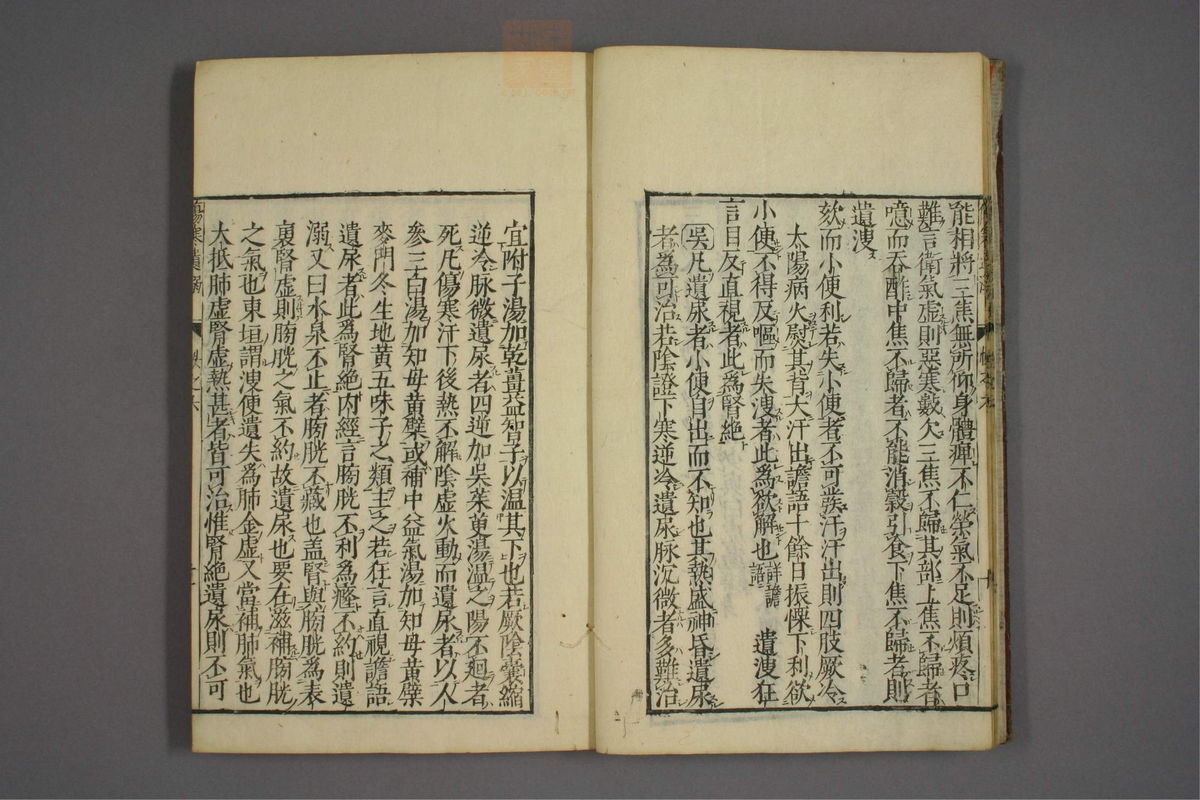 能相將三焦無所仰身體痺不仁榮氣不足則煩疼口
難言衛氣虛則惡寒數欠三焦不歸其部上焦不歸者
噫而吞酢中焦不歸者不能消穀引食下焦不歸者則
遺溲
欬而小便利若失小便者不可發汗汗出則四肢厥冷
太陽病火熨其背大汗出譫語十餘日振慄下利欲
小便不得反嘔而失溲者此爲欲解也詳譫語 遺溲狂
言目反直視者此爲腎絶
吳凡遺尿者小便自出而不知也其熱盛神昏遺尿
者爲可治若陰證下寒逆冷遺尿脉沉微者多難治
宜附子湯加乾薑益智子以温其下也若厥陰囊縮
逆冷脉微遺尿者四逆加吳茱萸湯温之陽不廻者
死凡傷寒汗下後熱不解陰虛火動而遺尿者以人
參三白湯加知母黄檗或補中益氣湯加知母黄檗
麥門冬生地黄五味子之類主之若狂言直視譫語
遺尿者此爲腎絶内經言膀胱不利爲癃不約則遺
溺又曰水泉不止者膀胱不藏也盖腎與膀胱爲表
裏腎虛則膀胱之氣不約故遺尿也要在滋補膀胱
之氣也東垣謂溲便遺失爲肺金虛又當補肺氣也
大抵肺虛腎虛熱甚者皆可治惟腎絶遺尿則不可